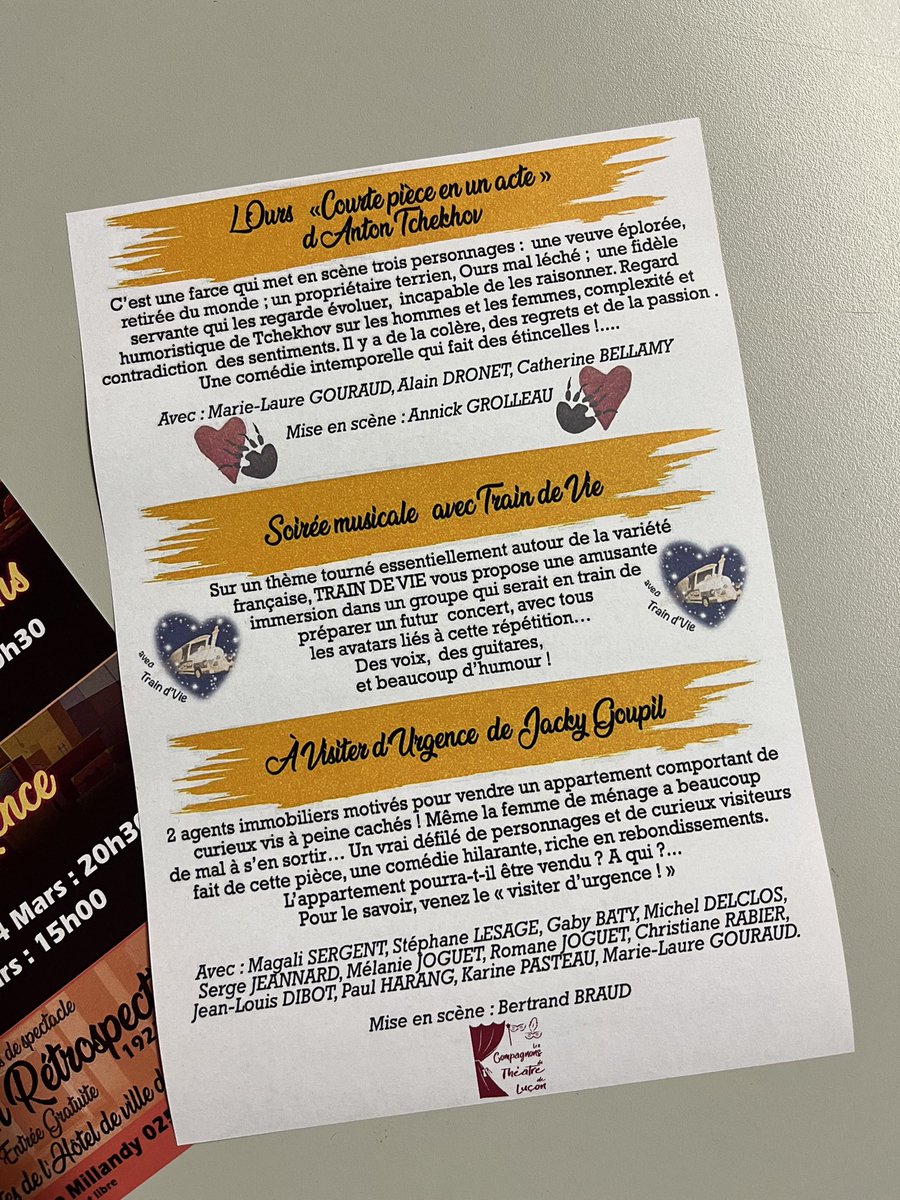 L'Ours «Courte pièce en un acte »
d'Anton Tchekhov
C'est une farce qui met en scène trois personnages : une veuve éplorée,
retirée du monde ; un propriétaire terrien, Ours mal léché ; une fidèle
servante qui les regarde évoluer, incapable de les raisonner. Regard
humoristique de Tchekhov sur les hommes et les femmes, complexité et
contradiction des sentiments. Il y a de la colère, des regrets et de la passion .
Une comédie intemporelle qui fait des étincelles !....
Avec : Marie-Laure GOURAUD, Alain DRONET, Catherine BELLAMY
Mise en scène : Annick GROLLEAU
Soirée musicale avec Train de Vie
Sur un thème tourné essentiellement autour de la variété
française, TRAIN DE VIE vous propose une amusante
immersion dans un groupe qui serait en train de
préparer un futur concert, avec tous
les avatars liés à cette répétition...
Des voix, des guitares,
et beaucoup d'humour !
avec
Train d'Vie
avec
Train d'Vie
À Visiter d'Urgence de Jacky Goupil
2 agents immobiliers motivés pour vendre un appartement comportant de
curieux vis à peine cachés ! Même la femme de ménage a beaucoup
de mal à s'en sortir... Un vrai défilé de personnages et de curieux visiteurs
fait de cette pièce, une comédie hilarante, riche en rebondissements.
L'appartement pourra-t-il être vendu ? A qui ?...
Pour le savoir, venez le « visiter d'urgence ! »
Avec : Magali SERGENT, Stéphane LESAGE, Gaby BATY, Michel DELCLOS,
Serge JEANNARD, Mélanie JOGUET, Romane JOGUET, Christiane RABIER,
Jean-Louis DIBOT, Paul HARANG, Karine PASTEAU, Marie-Laure GOURAUD.
Mise en scène : Bertrand BRAUD
Les
Compagnons
du
Théâtre
de
Luçon
h30
4 Mars : 20h30
: 15h00
de spectacle
Rétrospect
192
Entrée Gratuite
de l'Hôtel de ville d
Millandy 025
libre